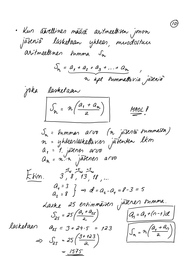 10
• Kun äärellinen määrä aritmeettisen jonon
jäseniä lasketaan yhteen, muodostuu
aritmeettinen summa Sₙ
Sₙ = a₁ + a₂ + a₃ + ... + aₙ ,
n kpl summattavia jäseniä
joka lasketaan
Sₙ = n (a₁ + aₙ / 2)
Sₙ = summan arvo (n jäsenen summalla)
n = yhteenlaskettavien jäsenten lkm
a₁ = 1. jäsenen arvo
aₙ = n:s jäsenen arvo
Esim. 3, 8, 13, 18, ...
a₁ = 3
a₂ = 8 } ⇒ d = a₂ - a₁ = 8 - 3 = 5
Laske 25 ensimmäisen jäsenen summa
S₂₅ = 25 (a₁ + a₂₅ / 2)
aₙ = a₁ + (n-1)d
lasketaan a₂₅ = 3 + 24 · 5 = 123
Sₙ = n (a₁ + aₙ / 2)
⇒ S₂₅ = 25 (3 + 123 / 2)
= 1575